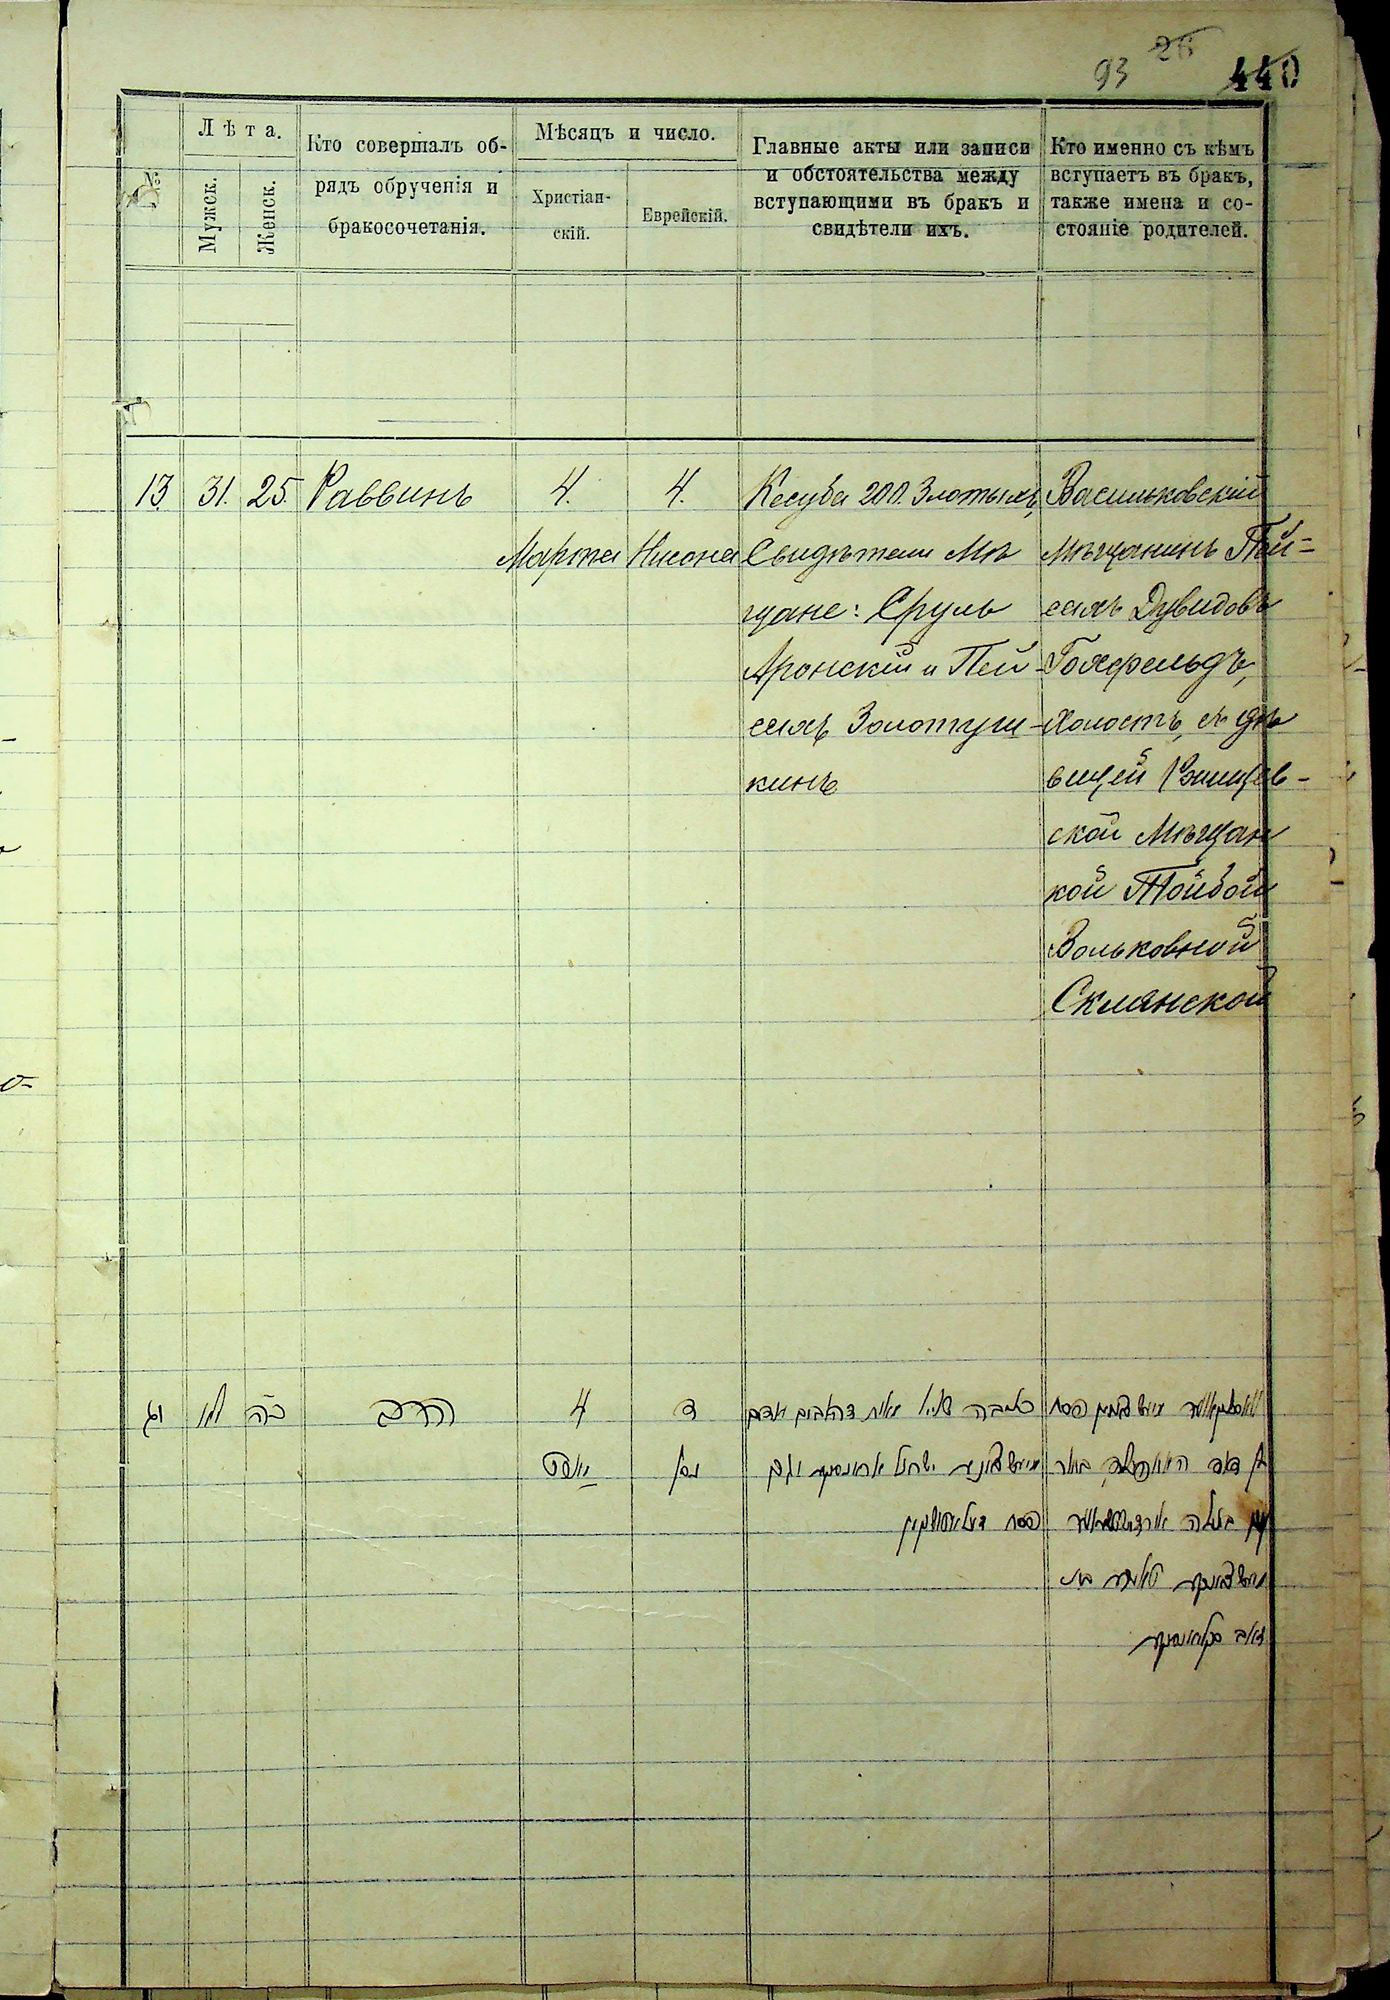 93 26 440
№
Лѣта.
Мужск.
Женск.
Кто совершалъ об-
рядъ обрученія и
бракосочетанія.
Мѣсяцъ и число.
Христіан-
скій.
Еврейскій.
Главные акты или записи
и обстоятельства между
вступающими въ бракъ и
свидѣтели ихъ.
Кто именно съ кѣмъ
вступаетъ въ бракъ,
также имена и со-
стояніе родителей.
13
31.
25.
Раввинъ
4.
Марта
4.
Нисона
Кесуба 200. Злотыхъ,
Свидѣтели Мѣ
щане: Сруль
Аронскій и Пей-
сахъ Золотуш-
кинъ
Васильковскій
Мѣщанинъ Пей-
сахъ Дувидовъ
Гохфельдъ,
холостъ, съ дѣ
вицей Ржищев-
ской Мѣщан
кой Тойбой
Вольковной
Склянской
יג
לא
כה
הרב
4
מארט
ד
ניסן
כתובה
ישראל
פסח
פסח
בן דוד
בתולה
בת
זאב